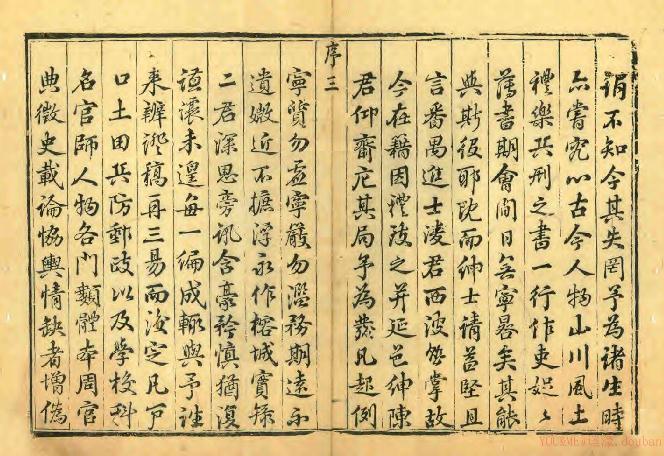 謂不知今其失罔予爲諸生時
亦嘗究心古今人物山川風土
禮樂兵刑之書一行作吏娖娖
簿書期會間日無寧晷矣其能
與斯役耶旣而紳士請益堅且
言番禺進士凌君西波能掌故
今在籍因禮致之并延邑紳陳
君仰齋庀其局予爲發凡起例
序三
寧質勿虛寧嚴勿濫務期遠不
遺媺近不摭浮永作榕城實錄
二君深思旁訊含毫矜慎猶復
謙讓未遑每一編成輒與予往
来辨證稿再三易而後定凡戶
口土田兵防郵政以及學校科
名官師人物各門類體本周官
典徵史載論協輿情缺者增僞
YOU&ME
douban